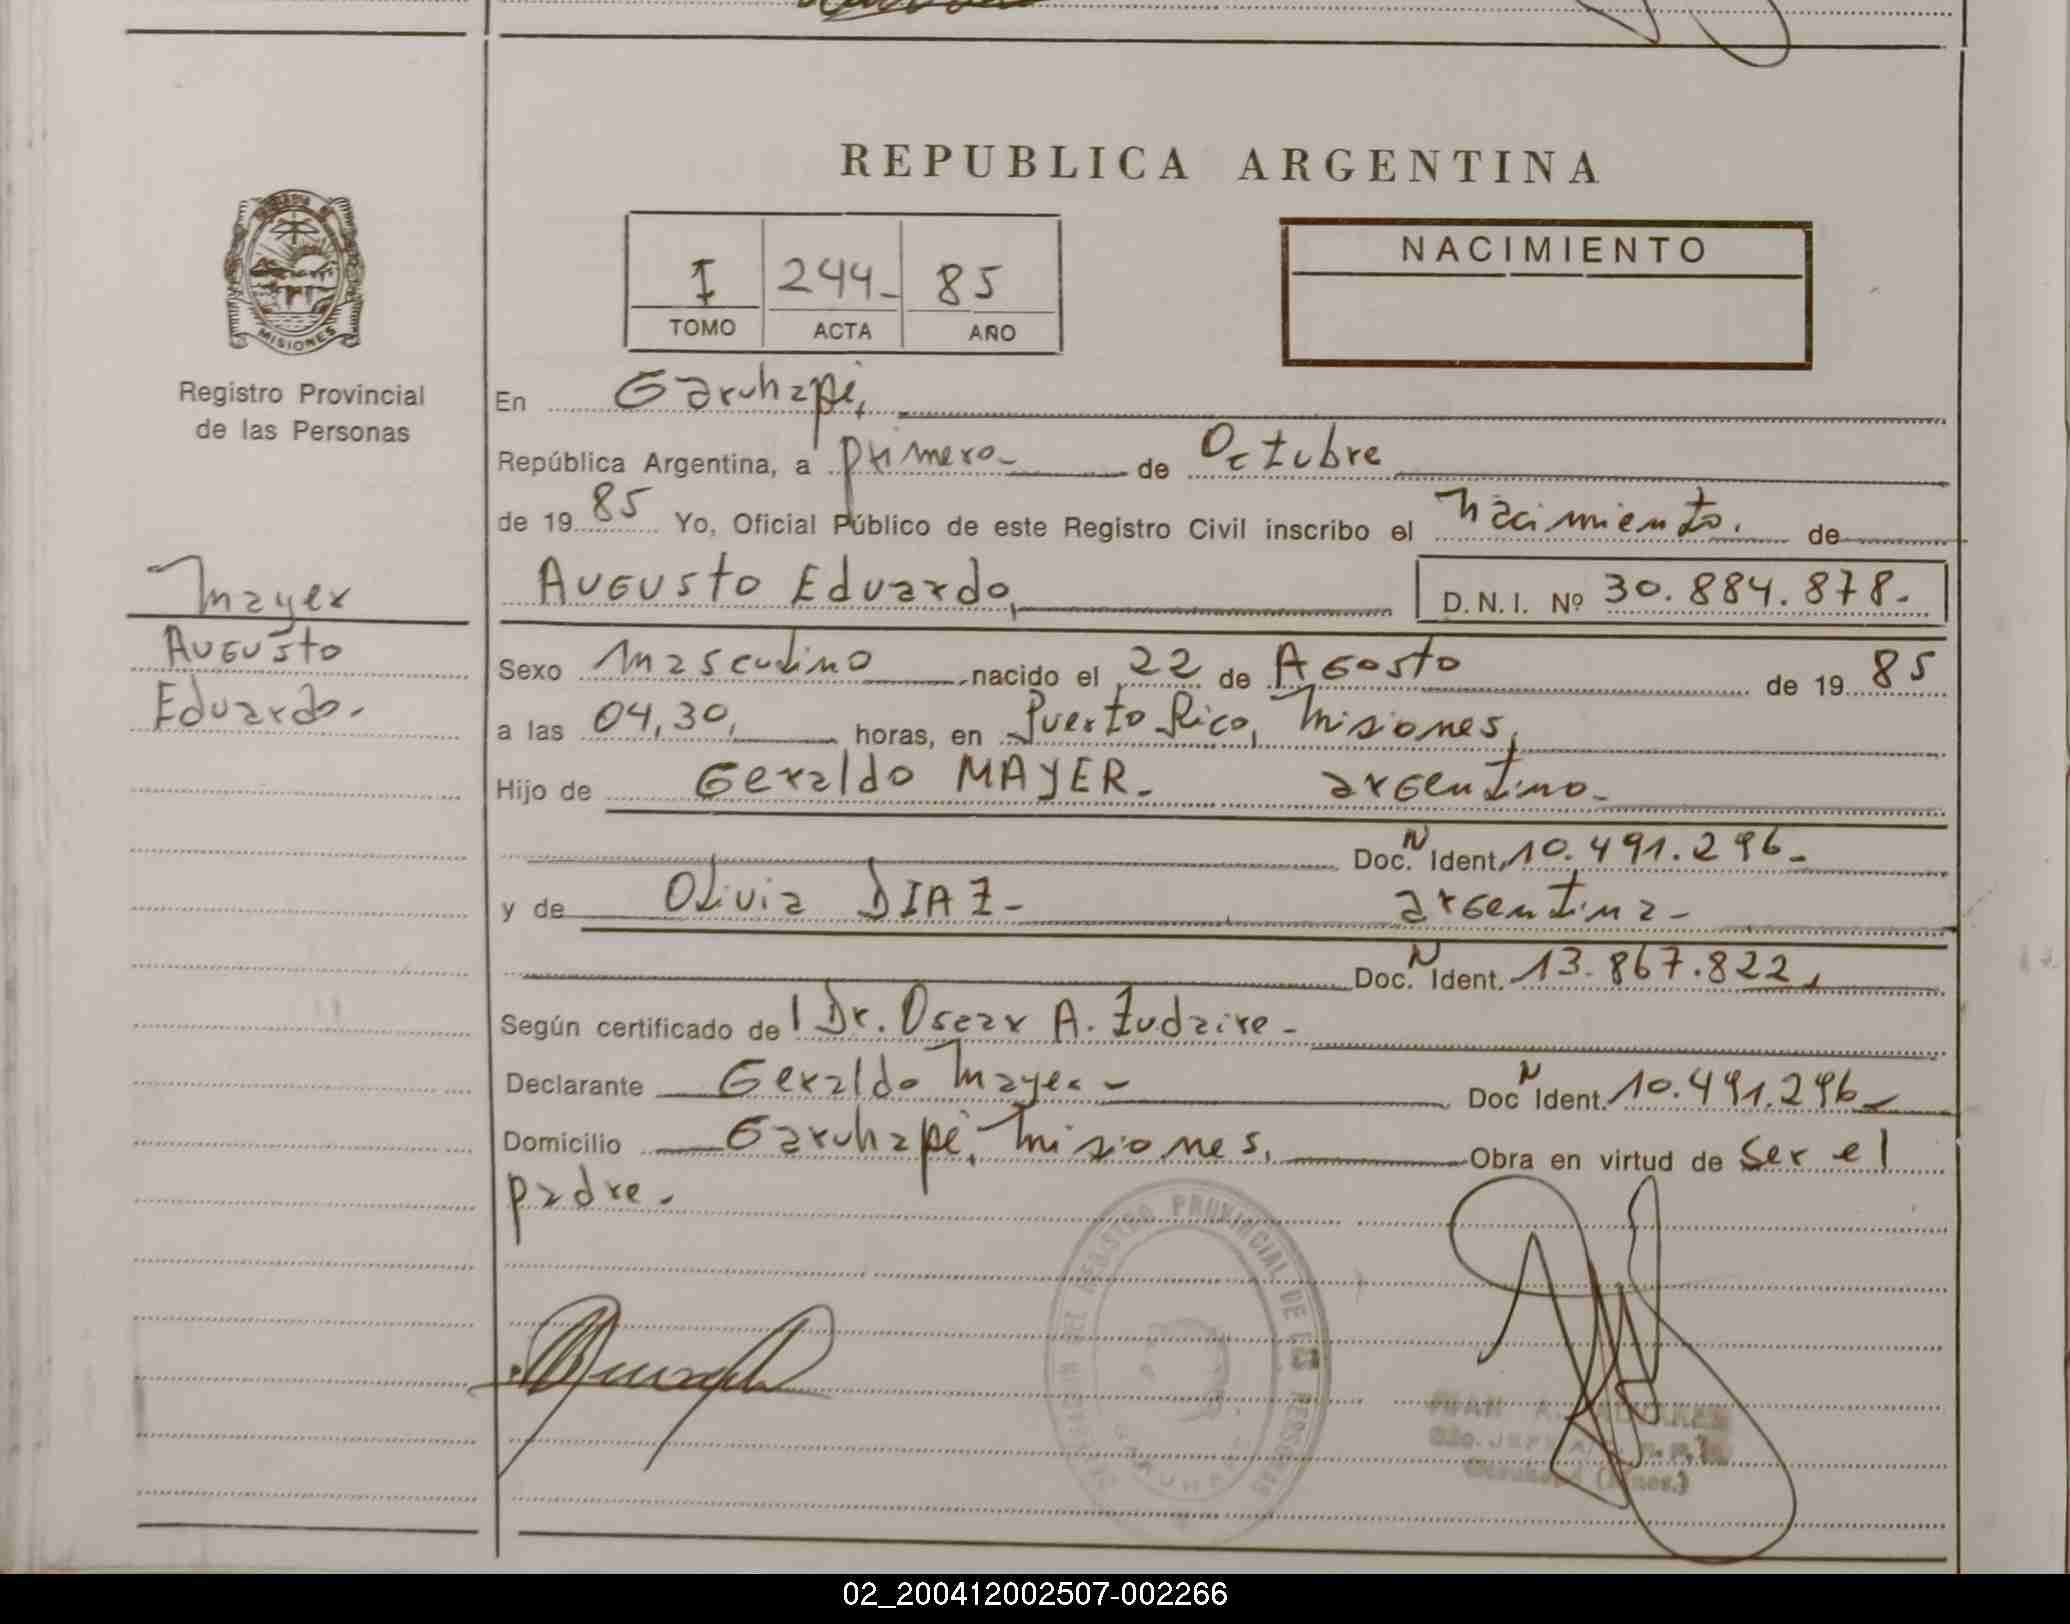 REPUBLICA ARGENTINA
MISIONES
Registro Provincial
de las Personas
I 244- 85
TOMO ACTA AÑO
NACIMIENTO
En Garuhapé,
República Argentina, a primero- de Octubre
de 1985 Yo, Oficial Público de este Registro Civil inscribo el nacimiento. de
Mayer
Augusto
Eduardo.
Augusto Eduardo, D.N.I. Nº 30.884.878.-
Sexo masculino nacido el 22 de Agosto de 1985
a las 04,30, horas, en Puerto Rico, Misiones,
Hijo de Geraldo MAYER.- argentino.-
Doc. N Ident. 10.491.296.-
y de Olivia DIAZ- argentina-
Doc. N Ident. 13.867.822,
Según certificado de l Dr. Oscar A. Zudaire-
Declarante Geraldo Mayer- Doc N Ident. 10.491.296-
Domicilio Garuhapé, Misiones, Obra en virtud de ser el
padre.
DEL REGISTRO PROVINCIAL DE LAS PERSONAS
02_200412002507-002266